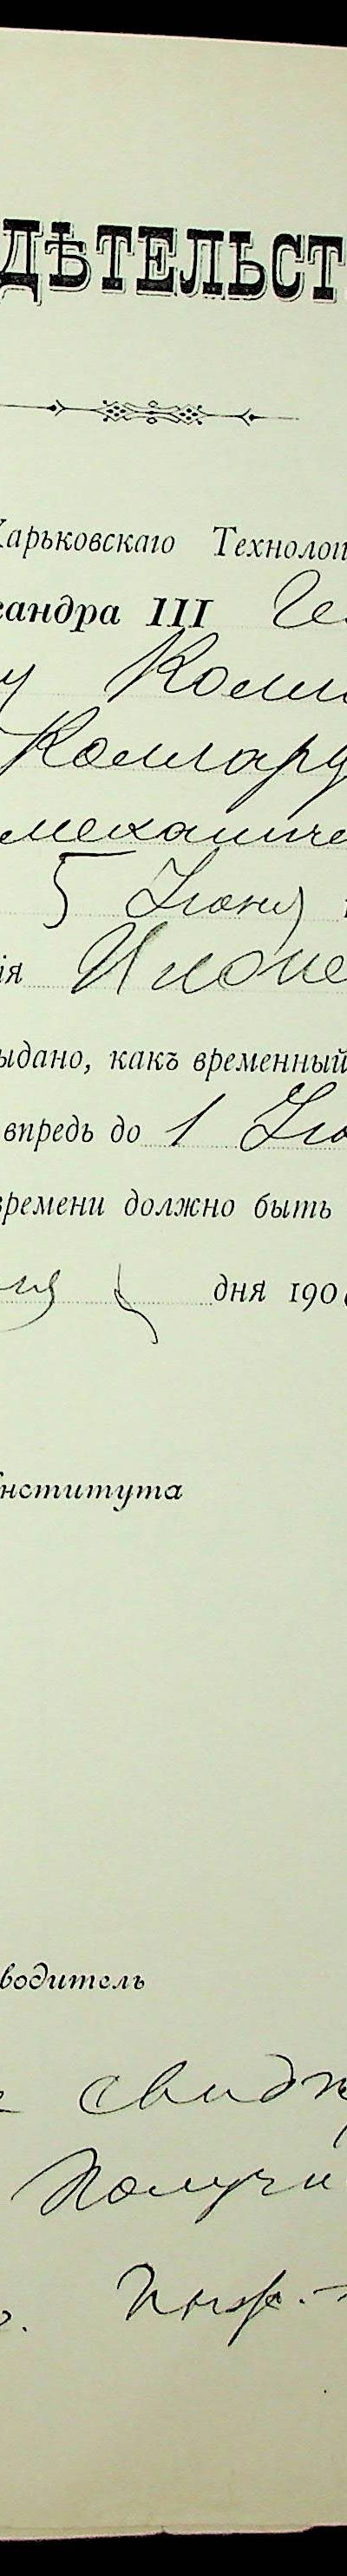 ДѢТЕЛЬСТ
Харьковскаго Технолог
сандра III Ге
у Колл
Коллару
механиче
5 Іюня
ія
ыдано, какъ временный
впредь до 1 Ію
времени должно быть
дня 190
Института
водитель
свидѣ
Получи
Инж.-